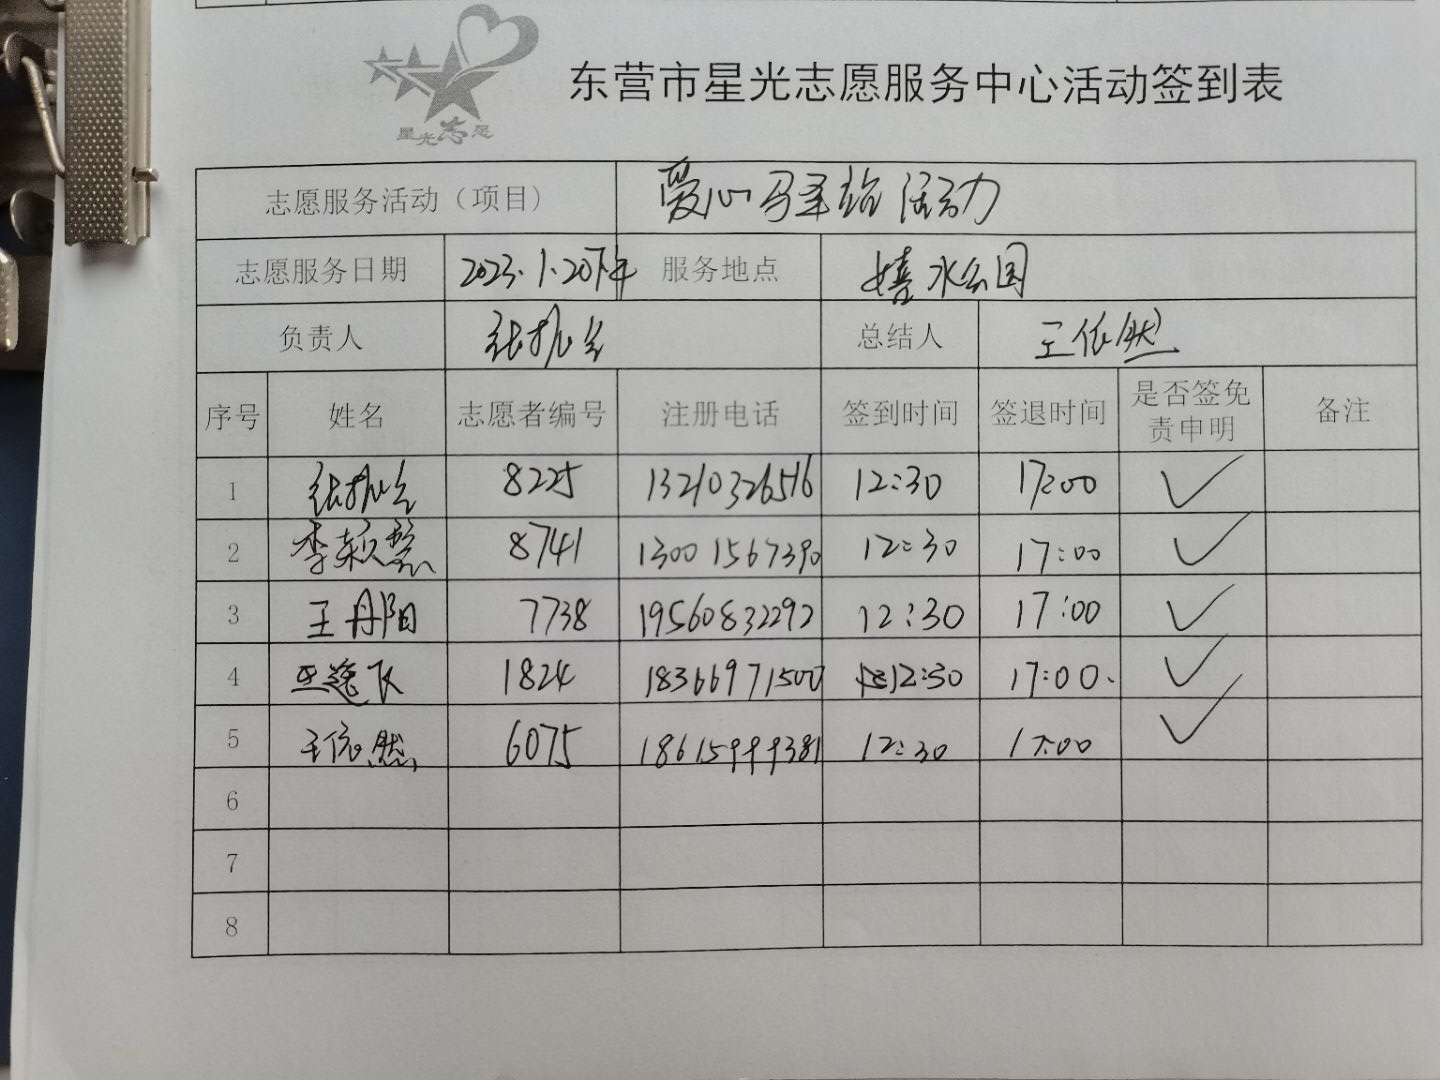 星光志愿
东营市星光志愿服务中心活动签到表
志愿服务活动（项目） 爱心驿站活动
志愿服务日期 2023.1.20下午 服务地点 嬉水公园
负责人 张振兰 总结人 王依然
序号 姓名 志愿者编号 注册电话 签到时间 签退时间 是否签免责申明 备注
1 张振兰 8225 13210326516 12:30 17:00 ✓
2 李颖慧 8741 13001567390 12:30 17:00 ✓
3 王丹阳 7738 19560832292 12:30 17:00 ✓
4 1824 18366971500 12:30 17:00. ✓
5 王依然 6075 18615999381 12:30 17:00 ✓
6
7
8